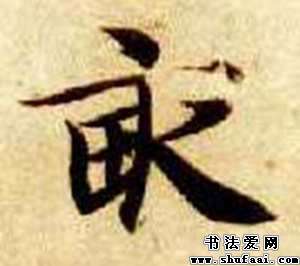 畝
书法爱网
www.shufaai.com